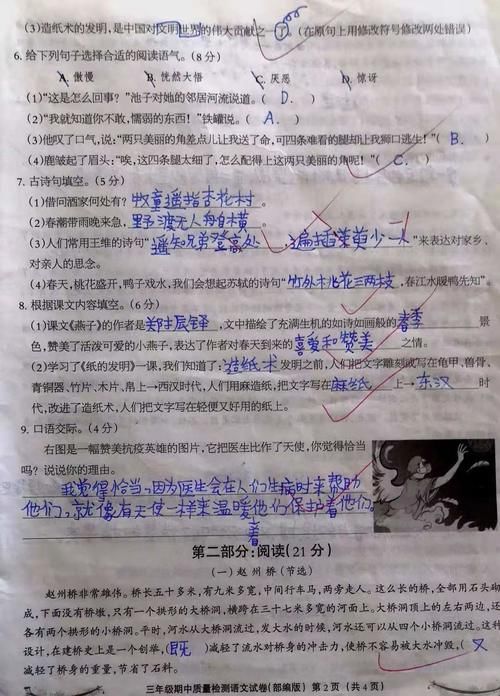 (3)造纸术的发明,是中国对文明世界的伟大贡献之一。(在原句上用修改符号修改两处错误)
6. 给下列句子选择合适的阅读语气。(8分)
A. 傲慢 B. 恍然大悟 C. 厌恶 D. 惊讶
(1)“这是怎么回事?”池子对她的邻居河流说道。( D. )
(2)“我就知道你不敢,懦弱的东西!”铁罐说。( A. )
(3)他叹了口气,说:“两只美丽的角差点儿让我送了命,可四条难看的腿却让我狮口逃生!”( B. )
(4)鹿皱起了眉头:“唉,这四条腿太细了,怎么配得上这两只美丽的角呢!”( C. )
7. 古诗句填空。(5分)
(1)借问酒家何处有?牧童遥指杏花村。
(2)春潮带雨晚来急,野渡无人舟自横。
(3)人们常用王维的诗句“遥知兄弟登高处,遍插茱萸少一人”来表达对家乡、
对亲人的思念。
(4)春天,桃花盛开,鸭子戏水,我们会想起苏轼的诗句“竹外桃花三两枝,春江水暖鸭先知”。
8. 根据课文内容填空。(6分)
(1)课文《燕子》的作者是郑振铎,文中描绘了充满生机的如诗如画般的春季景
色,赞美了活泼可爱的小燕子,表达了作者对春天到来的喜爱和赞美之情。
(2)学习了《纸的发明》一课,我们知道了:造纸术发明之前,人们把文字雕刻或写在龟甲、兽骨、
青铜器、竹片、木片、帛上→西汉时代,人们用麻造纸,把文字写在麻丝纸上→东汉时
代,改进了造纸术,人们把文字写在轻便又好用的纸上。
9. 口语交际。(4分)
右图是一幅赞美抗疫英雄的图片,它把医生比作了天使,你觉得恰当
吗?说说你的理由。
我觉得恰当,因为医生会在人们生病时来帮助
他们,就像有天使一样来温暖他们保护着他们。
着
第二部分:阅读(21分)
(一)赵州桥(节选)
赵州桥非常雄伟。桥长五十多米,有九米多宽,中间行车马,两旁走人。这么长的桥,全部用石头砌
成,下面没有桥墩,只有一个拱形的大桥洞,横跨在三十七米多宽的河面上。大桥洞顶上的左右两边,还
各有两个拱形的小桥洞。平时,河水从大桥洞流过,发大水的时候,河水还可以从四个小桥洞流过。这种
设计,在建桥史上是一个创举,(既)减轻了流水对桥身的冲击力,使桥不容易被大水冲毁,(又)
减轻了桥身的重量,节省了石料。
三年级期中质量检测语文试卷(部编版) 第2页(共4页)